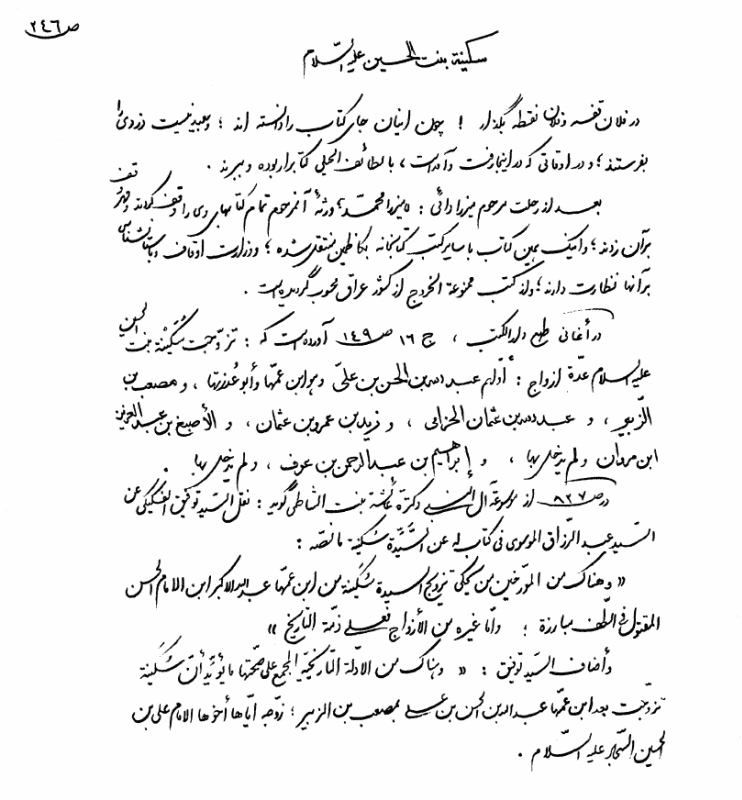 ص ٢٤٦
سكينة بنت الحسين عليه السّلام
در فلان قفسه و فلان نقطه بگذار ! چون اينان جاى كتاب را دانسته اند ؛ و بعيد نيست دزدى را
بفرستند ؛ و در اوقاتى كه در اينجا رفت و آمد است ، با لطائف الحيل كتابرا ربوده و ببرند .
بعد از رحلت مرحوم ميرزا دائى : ميرزا محمّد ، ورثۀ آنمرحوم تمام كتابهاى وى را وقف كردند و مهر وقف
برآن زدند ؛ و اينك همين كتاب با ساير كتب كتابخانه بكاظمين منتقل شده ؛ و وزارت اوقاف و باستانشناسى
برآنها نظارت دارند ؛ و از كتب ممنوعة الخروج از كشور عراق محسوب گرديده است .
در أغانى طبع دار الكتب ، ج ١٦ ص ١٤٩ آورده است كه : تزوّجت سُكَيْنَة بنت الحسين
عليه السلام عدّة ازواج : أوّلهم عبد الله بن الحسن بن علىّ و هو ابن عمّها و أبو عُذرتها ، و مصعب بن
الزّبير ، و عبد الله بن عثمان الحزامى ، و زيد بن عمرو بن عثمان ، و الأصبغ بن عبد العزيز
ابن مروان و لم يدخل بها ، و إبراهيم بن عبد الرحمن بن عوف ، و لم يدخل بها .
در ص ٨٢٧ از موسوعة آل النبى دكتره عائشة بنت الشاطى گويد : نقل السّيد توفيق الفكيكى عن
السّيد عبد الرّزاق الموسوى فى كتاب له عن السَّيِّدَة سُكَيْنَة ما نصّه :
« و هناك من المورّخين من يحكى تزويج السيدة سُكَينة من ابن عمّها عبد الله الاكبر ابن الامام الحسن
المقتول فى الطّف مبارزة ؛ و أمّا غيره من الأزواج فعلى ذمّة التّاريخ »
و أضاف السّيد توفيق : « و هناك من الادلّة التّاريخيّة المجمع على صحّتها ما يؤيّد أنّ سُكَينة
تزوّجت بعد ابن عمّها عبد الله بن الحسن بن على بمصعب بن الزبير ؛ زوّجه ايّاها أخوها الامام على بن
الحسين السّجاد عليه السّلام .